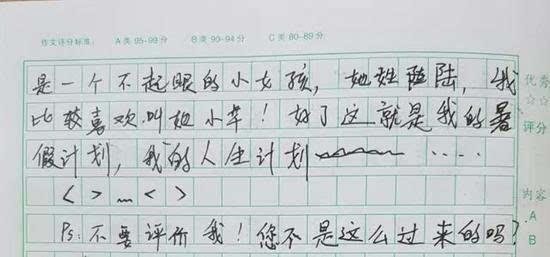 作文评分标准: A类 95-99分 B类 90-94分 C类 80-89分
是一个不起眼的小女孩，她姓陆，我
比较喜欢叫她小草！好了这就是我的暑
假计划，我的人生计划~~~ ····
< > … < >
Ps:不要评价我！您不是这么过来的吗?
优秀
☆☆
评分
内容
A
B